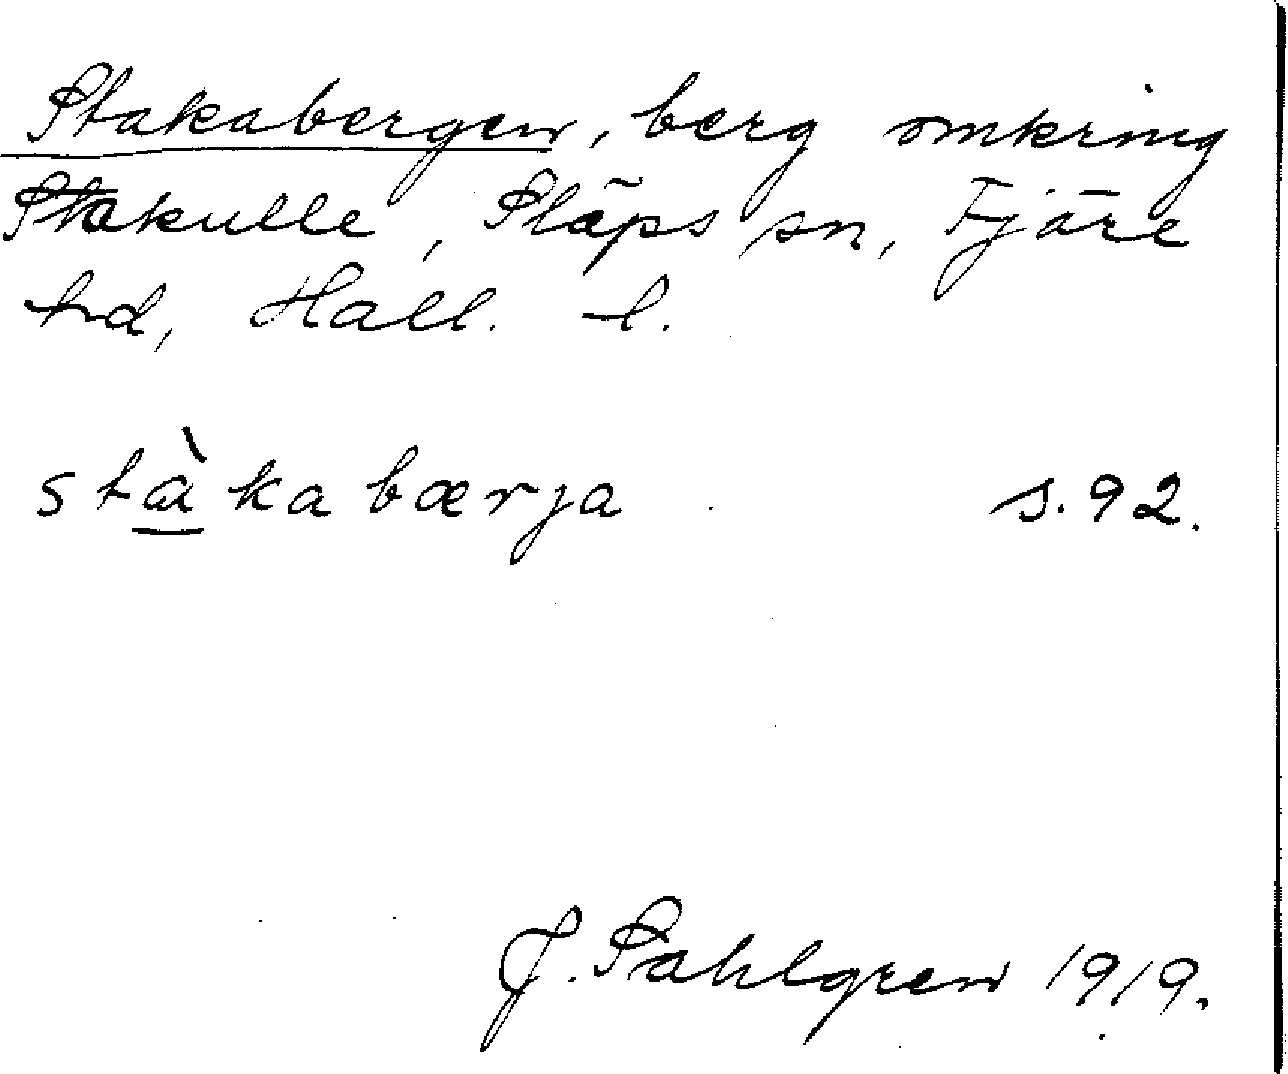 Stakabergen, berg omkring
Stakulle, Släps sn, Fjäre
hd, Hall. l.
stàkabærja s. 92.
J. Sahlgren 1919.